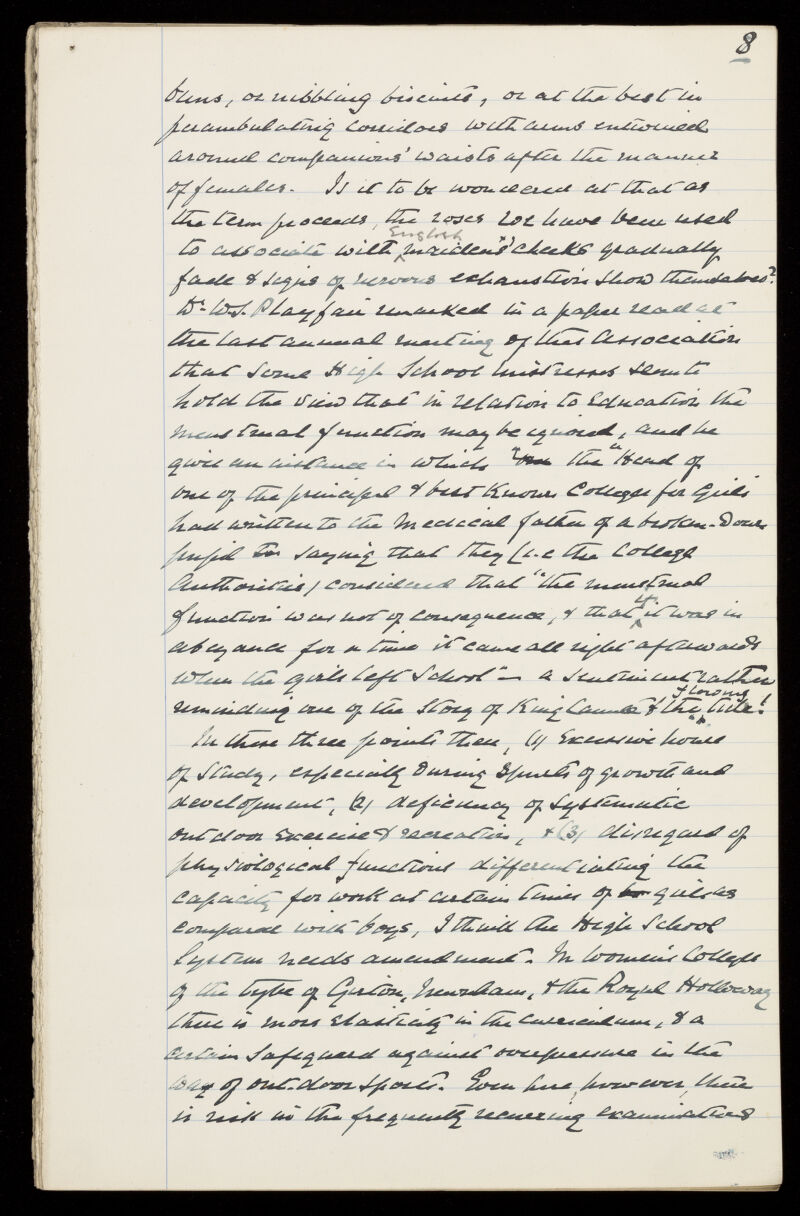 8
buns, or nibbling biscuits, or at the best in
perambulating corridors with arms entwined
around companions' waists after the manner
of females. Is it to be wondered at that as
the term proceeds, the roses we have been used
to associate with English maidens' cheeks gradually
fade & signs of nervous exhaustion show themselves?
Dr. W.S. Playfair remarked in a paper read at
the last annual meeting of this Association
that some High School Mistresses seem to
hold the view that in relation to Education the
menstrual function may be ignored, and he
gives an instance in which the "Head of
one of the principal & best known Colleges for Girls
had written to the medical father of a broken-down
pupil saying that they (i.e the College
Authorities) considered that "the menstrual
function was not of consequence, & that if it was in
abeyance for a time it came all right afterwards
when the girls left School" — a sentiment rather
reminding one of the story of King Canute & the flowing tide!
In these three points then, (1) Excessive hours
of Study, especially during spurts of growth and
development, (2) deficiency of Systematic
outdoor Exercise & recreation, & (3) disregard of
physiological functions differentiating the
capacity for work at certain times of girls as
compared with boys, I think the High School
System needs amendment. In Women's Colleges
of the type of Girton, Newnham, & the Royal Holloway
there is more Elasticity in the curriculum, & a
certain Safeguard against overpressure in the
way of out-door sports. Even here, however, there
is risk in the frequently recurring examinations